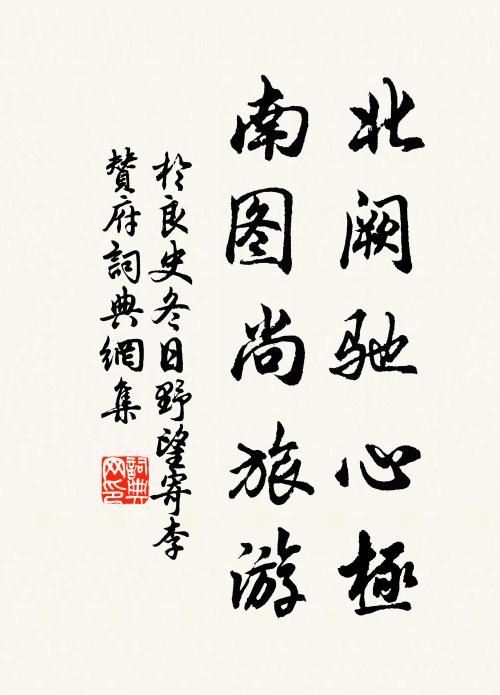 北阙驰心极
南图尚旅游
於良史冬日野望寄李
贊府詞典網集
詞典
网印